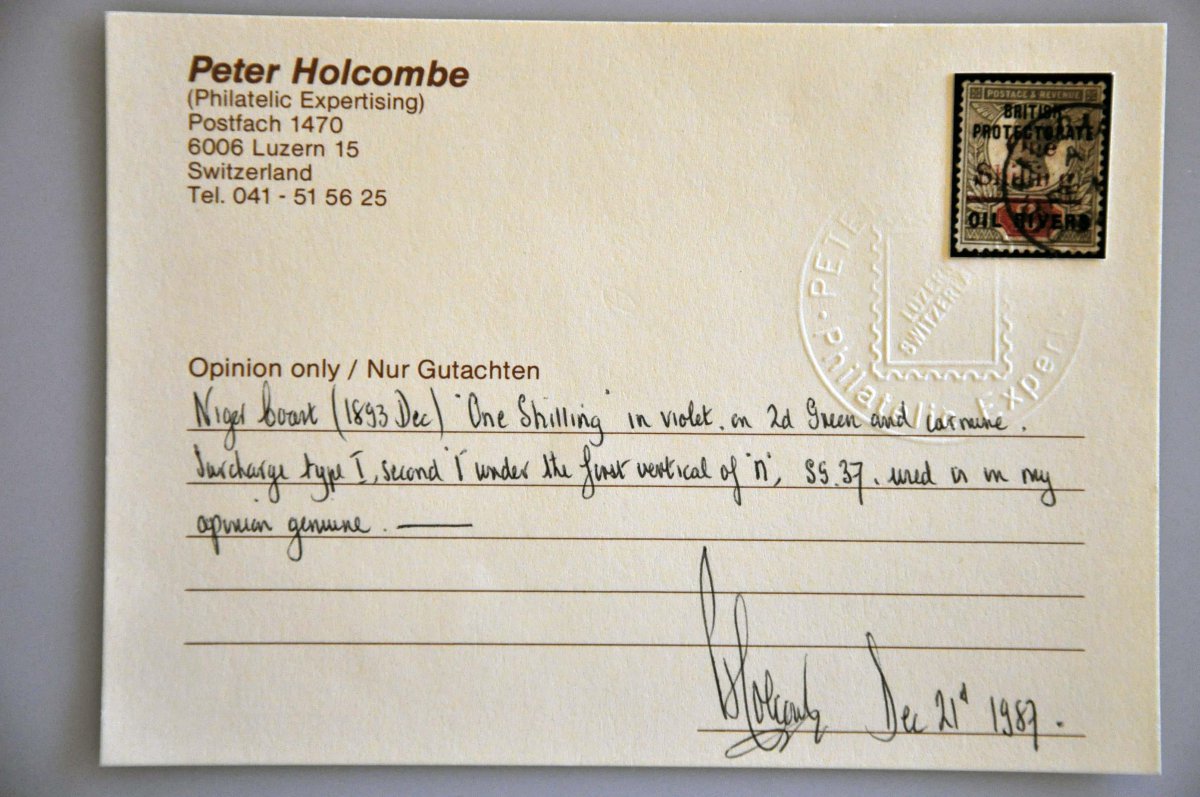 Peter Holcombe
(Philatelic Expertising)
Postfach 1470
6006 Luzern 15
Switzerland
Tel. 041 - 51 56 25
POSTAGE & REVENUE
BRITISH
PROTECTORATE
One
Shilling
OIL RIVERS
PETE
LUZER
SWITZERLA
Philatelic Expert
Opinion only / Nur Gutachten
Niger Coast (1893 Dec) "One Shilling" in violet. on 2d Green and carmine.
Surcharge type I, second 'i' under the first vertical of 'n', SG.37. used is in my
opinion genuine.
PHolcombe Dec 21st 1987.